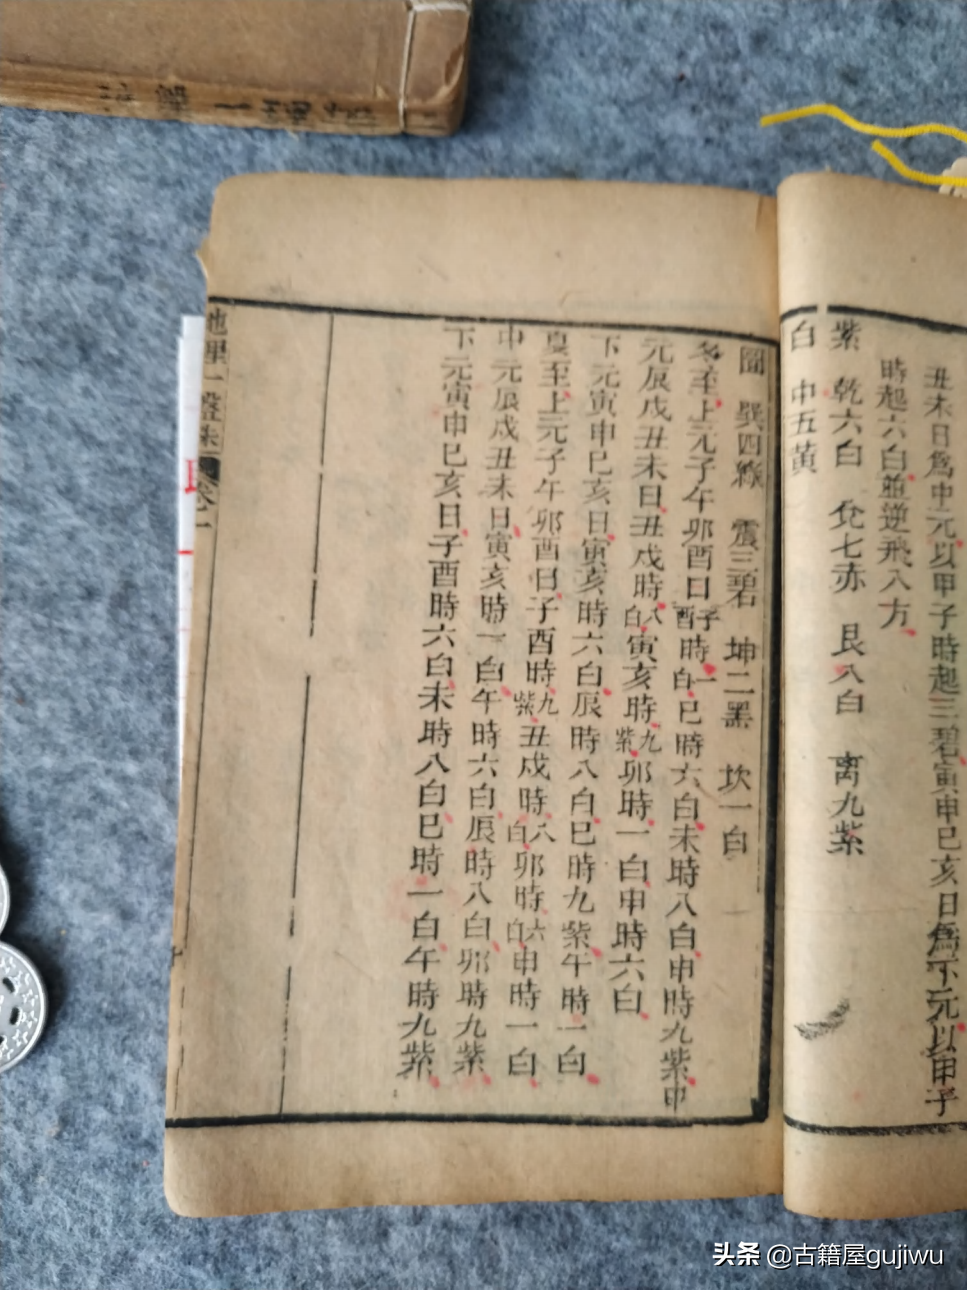 丑未日爲中元以甲子時起三碧寅申巳亥日爲下元以甲子
時起六白並逆飛八方
紫　乾六白　兌七赤　艮八白　离九紫
白　中五黃
圖　巽四綠　震三碧　坤二黑　坎一白
冬至上元子午卯酉日子酉時一白巳時六白未時八白申時九紫中
元辰戌丑未日丑戌時八白寅亥時九紫卯時一白申時六白
下元寅申巳亥日寅亥時六白辰時八白巳時九紫午時一白
夏至上元子午卯酉日子酉時九紫丑戌時八白卯時六白申時一白
中元辰戌丑未日寅亥時一白午時六白辰時八白卯時九紫
下元寅申巳亥日子酉時六白未時八白巳時一白午時九紫
地理一盤珠 卷一
头条 @古籍屋gujiwu